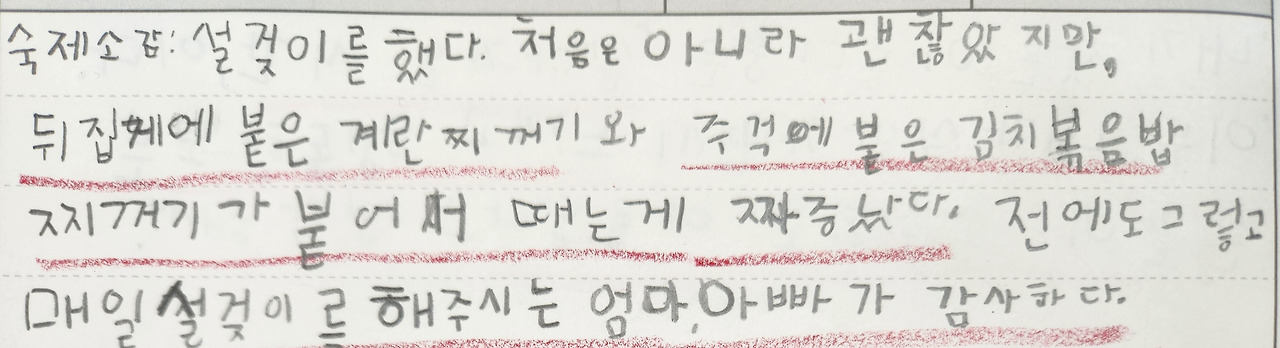 숙제소감: 설겆이를 했다. 처음은 아니라 괜찮았지만,
뒤집께에 붙은 계란찌꺼기와 주걱에 붙은 김치볶음밥
찌꺼기가 붙어서 때는게 짜증났다. 전에도 그렇고
매일 설겆이를 해주시는 엄마, 아빠가 감사하다.